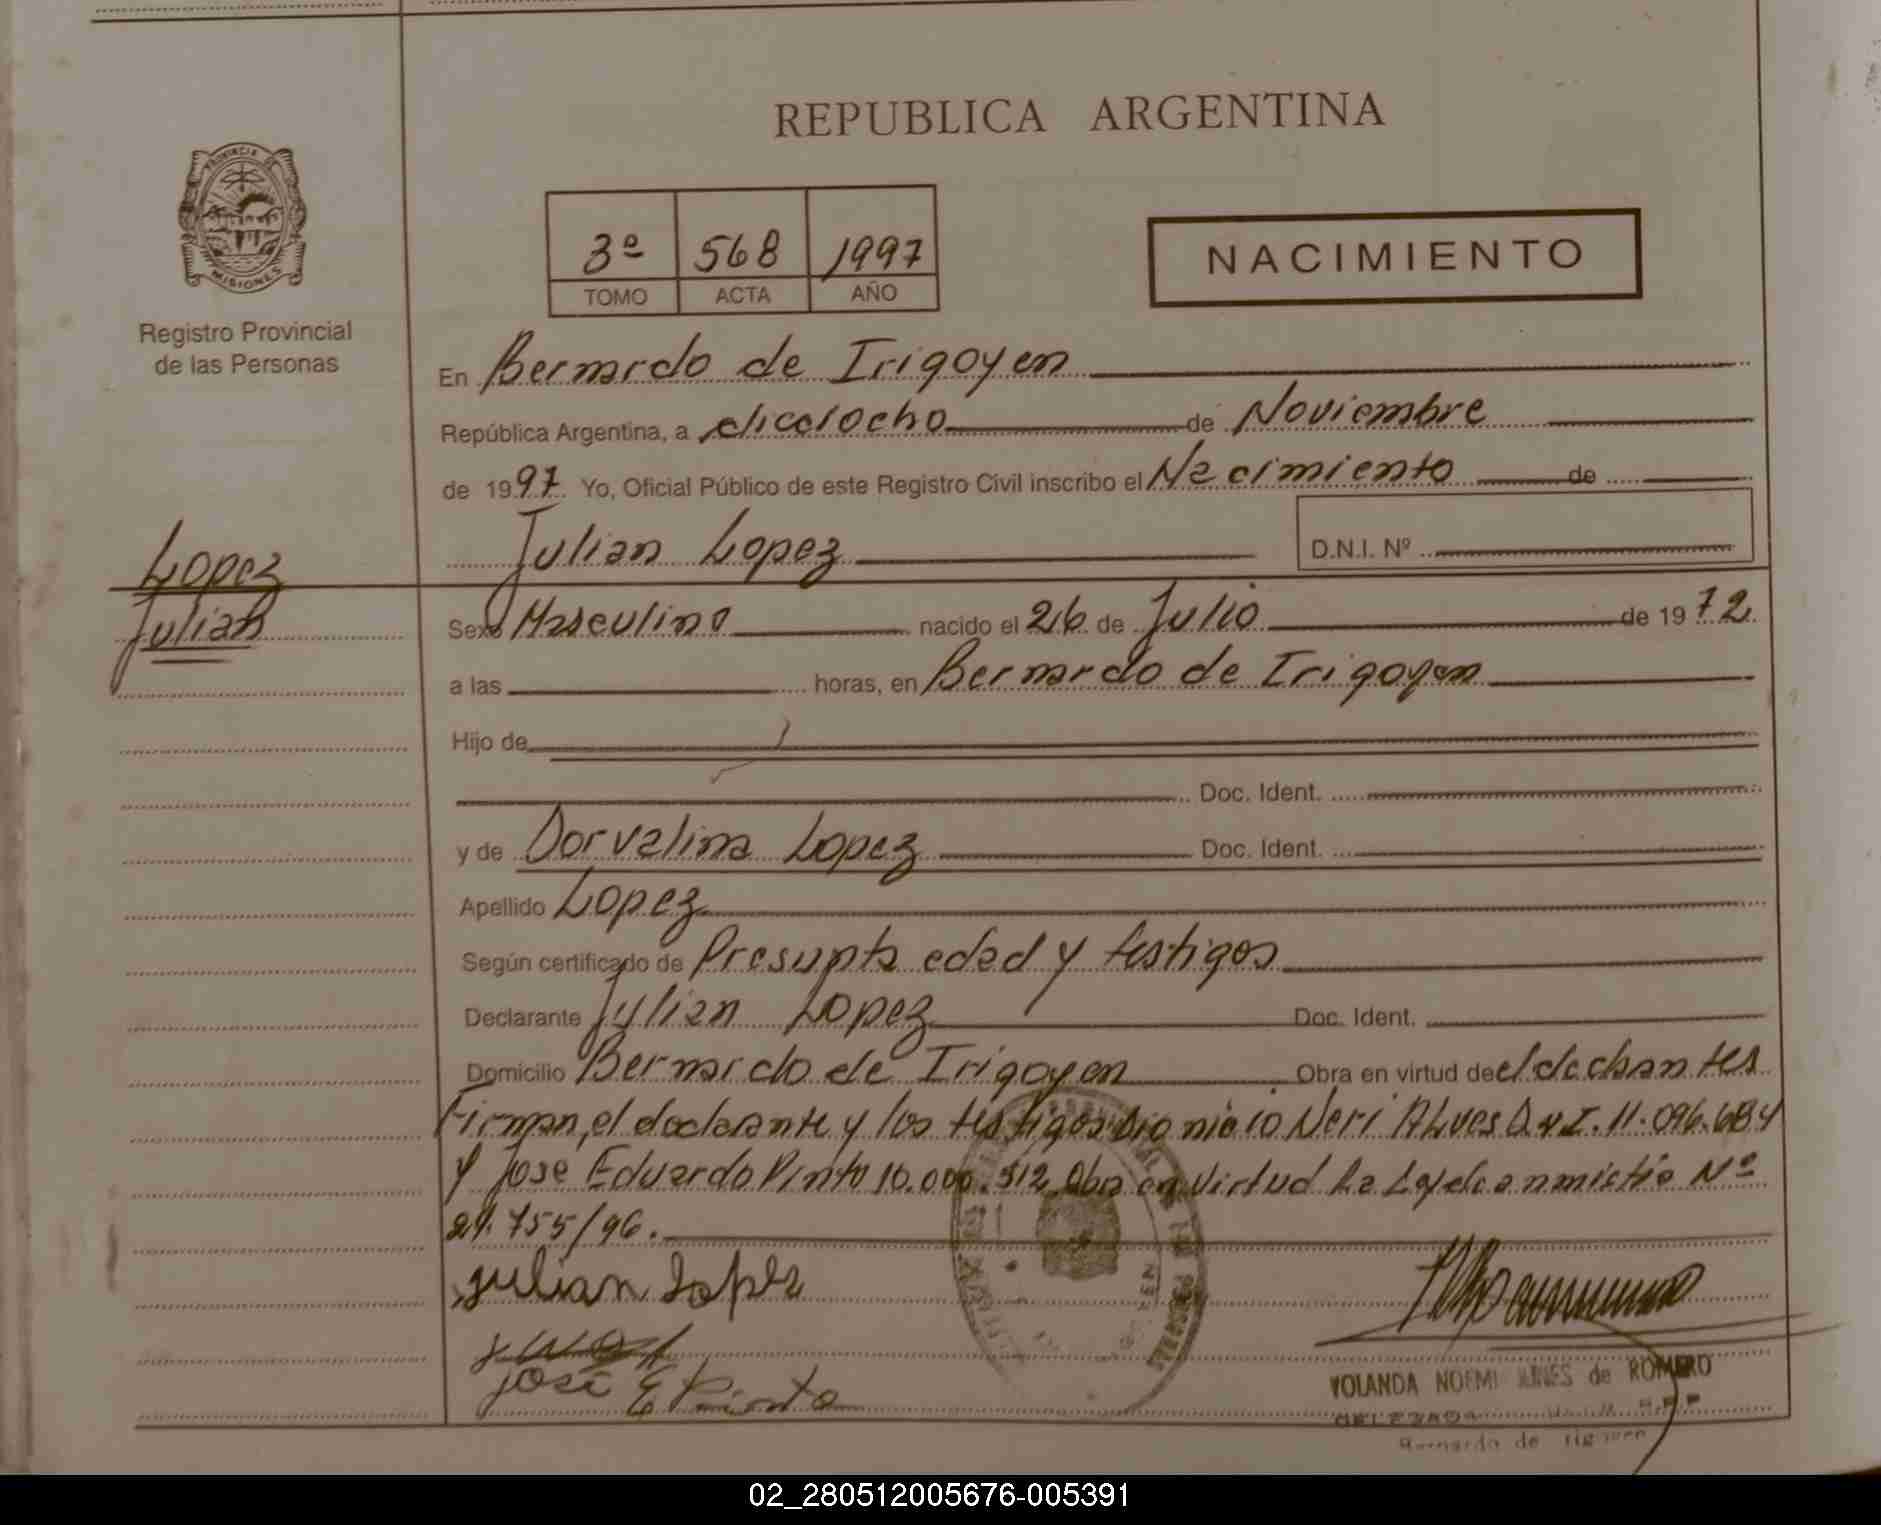 REPUBLICA ARGENTINA
PROVINCIA DE
MISIONES
Registro Provincial
de las Personas
3º 568 1997
TOMO ACTA AÑO
NACIMIENTO
En Bernardo de Irigoyen
República Argentina, a dieciocho de Noviembre
de 1997 Yo, Oficial Público de este Registro Civil inscribo el Nacimiento de
Julian Lopez D.N.I. Nº
Lopez
Julian
Sexo Masculino nacido el 26 de Julio de 1972
a las horas, en Bernardo de Irigoyen
Hijo de
Doc. Ident.
y de Dorvalina Lopez Doc. Ident.
Apellido Lopez
Según certificado de Presunta edad y testigos
Declarante Julian Lopez Doc. Ident.
Domicilio Bernardo de Irigoyen Obra en virtud de
Firman, el declarante y los testigos Dionicio Neri Alves D.N.I. 11.096.684
y Jose Eduardo Pinto 10.000.512 Obra en Virtud La Ley de anmistia Nº
24.755/96.
julian Lopez
José E Pinto
YOLANDA NOEMI de ROMERO
Bernardo de Irigoyen
02_280512005676-005391